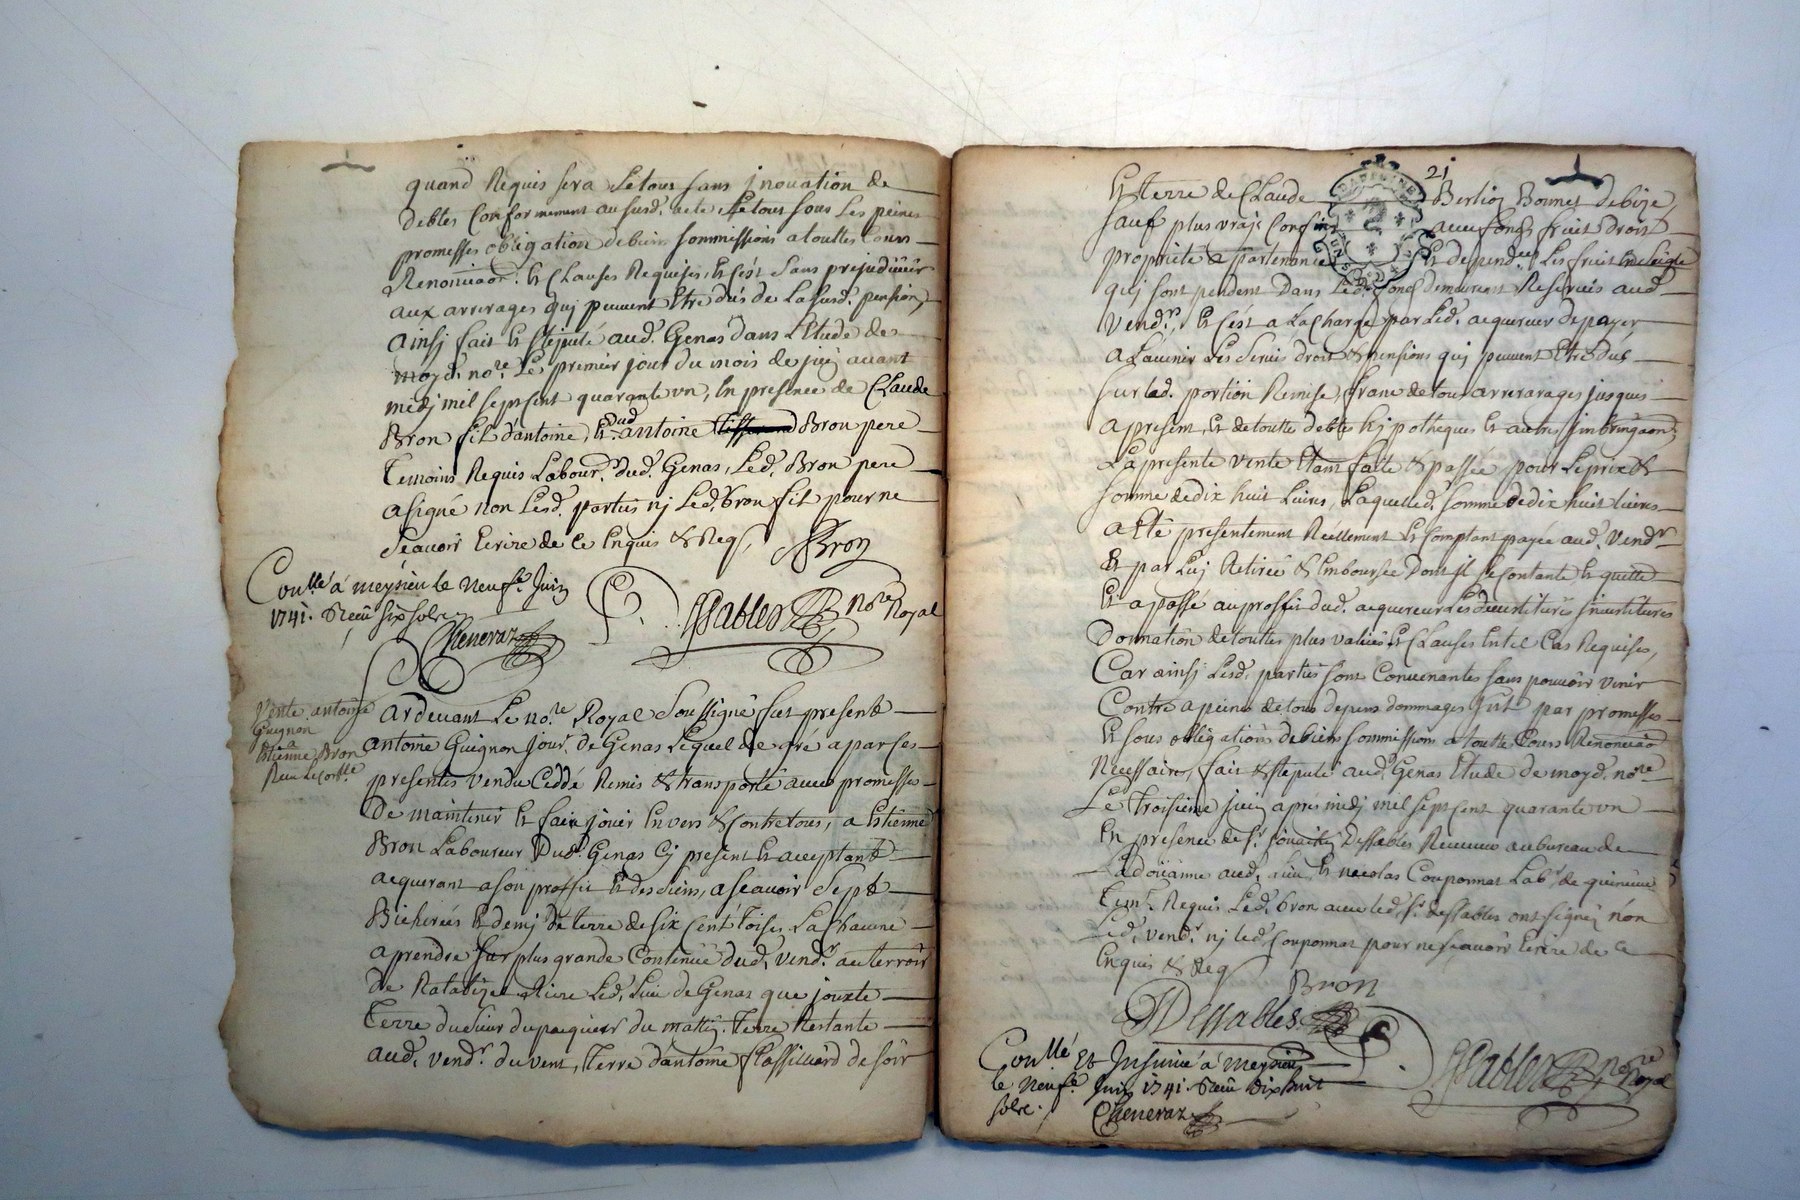 quand Requis sera Letout sans jnouation de
debtes Conformement aususd. acte, Letout sous Les peines
promesses obligation debiens sommissions atouttes Cours
Renonciaon. Et Clauses Requises, Et C'est sans prejudicier
aux arrerages quj peuuent Etre dus de Lasusd. pension,
ainsj fait Et stipulé aud. Genas dans L'Etude de
moyd. nore. Le premier jour du mois de juin auant
midj mil sept Cent quarante vn, En presence de Claude
Bron fils d'antoine, Et antoine Bron pere
dud.
Temoins Requis Labour. dud. Genas, Led. Bron pere
asigné non Lesd. parties nj Led. bron fils pour ne
Sçauoir Ecrire de Ce Enquis & Req.
Bron
Conllé à meysieu le neufe. Juin
1741. Receu six sols
Cheneraz
Dessables nore Royal
Vente antoine
Guignon
a
Etienne Bron
ardeuant Le nore. Royal Soussigné fut present
antoine Guignon jour. de Genas Lequel de gré a par Ces
presentes vendu Ceddé Remis & transporté auec promesse
De maintenir Et faire jouir Enuers & Contre tous, a Etienne
Bron Laboureur Dud. Genas Cj present Et acceptant
acquerant a son proffit Et des siens, a sçauoir Sept
Bicherées Et demj de terre de six Cent Toises La Chacune
aprendre sur plus grande Contenüe dud. vendr. au terroir
De Ratabize Riere Led. Lieu de Genas que jouxte
Terre du sieur du pacquier du matin, Terre Restante
aud. vendr. du vent, Terre d'antoine Flassilliard de soir
21
Et Terre de Claude Berlioz Bonnet debize,
sauf plus vrais Confins auec fonds fruits droit
propriété apartenance Et dépendces. Les fruits En seigle
quj sont pendent Dans Led. fond demeurent Reserués aud.
vendr., Et C'est a LaCharge par Led. acquereur de payer
a Lauenir Les Seruis droit & pensions quj peuuent Etre dus
sur lad. portion Remise, franc de tous arrerarages jusques
apresent, Et de touttes debtes hypotheques Et autres
La presente vente Etant faite & passée pour Le prix &
somme de dix huit Liures, Laquelled. somme de dix huit liures
a Eté presentement Réellement Et Comptant payée aud. vendr.
Et par Luj Retirée & Emboursée Dont jl se contante Et quitte
Et a passé au proffit dud. acquereur Les deuestitures jnuestitures
Donnation de touttes plus valües Et Clauses En tel Cas Requises,
Car ainsj Lesd. parties sont Conuenantes sans pouuoir venir
Contre a peine de tous depens dommages par promesses
Et sous obligations de biens sommissions a toutte Cours Renonciaõ
Necessaire, fait & stipulé aud. Genas Etude de moyd. nore.
Le Troisieme juin aprés midj mil sept Cent quarante vn
En presence de sr. Dessables Receueur au bureau de
Ladoüanne aud. Lieu, Et nicolas Couponnat Labr. de
Tem. Requis Led. bron auec led. sr. dessables ont signé, non
Led. vendr. nj led. Couponnat pour ne sçauoir Ecrire de ce
Enquis & Req
Bron
Dessables
Conllé Et Insinué à meysieu
le neufe. Juin 1741. Receu dix huit
sols.
Cheneraz
Dessables nore Royal